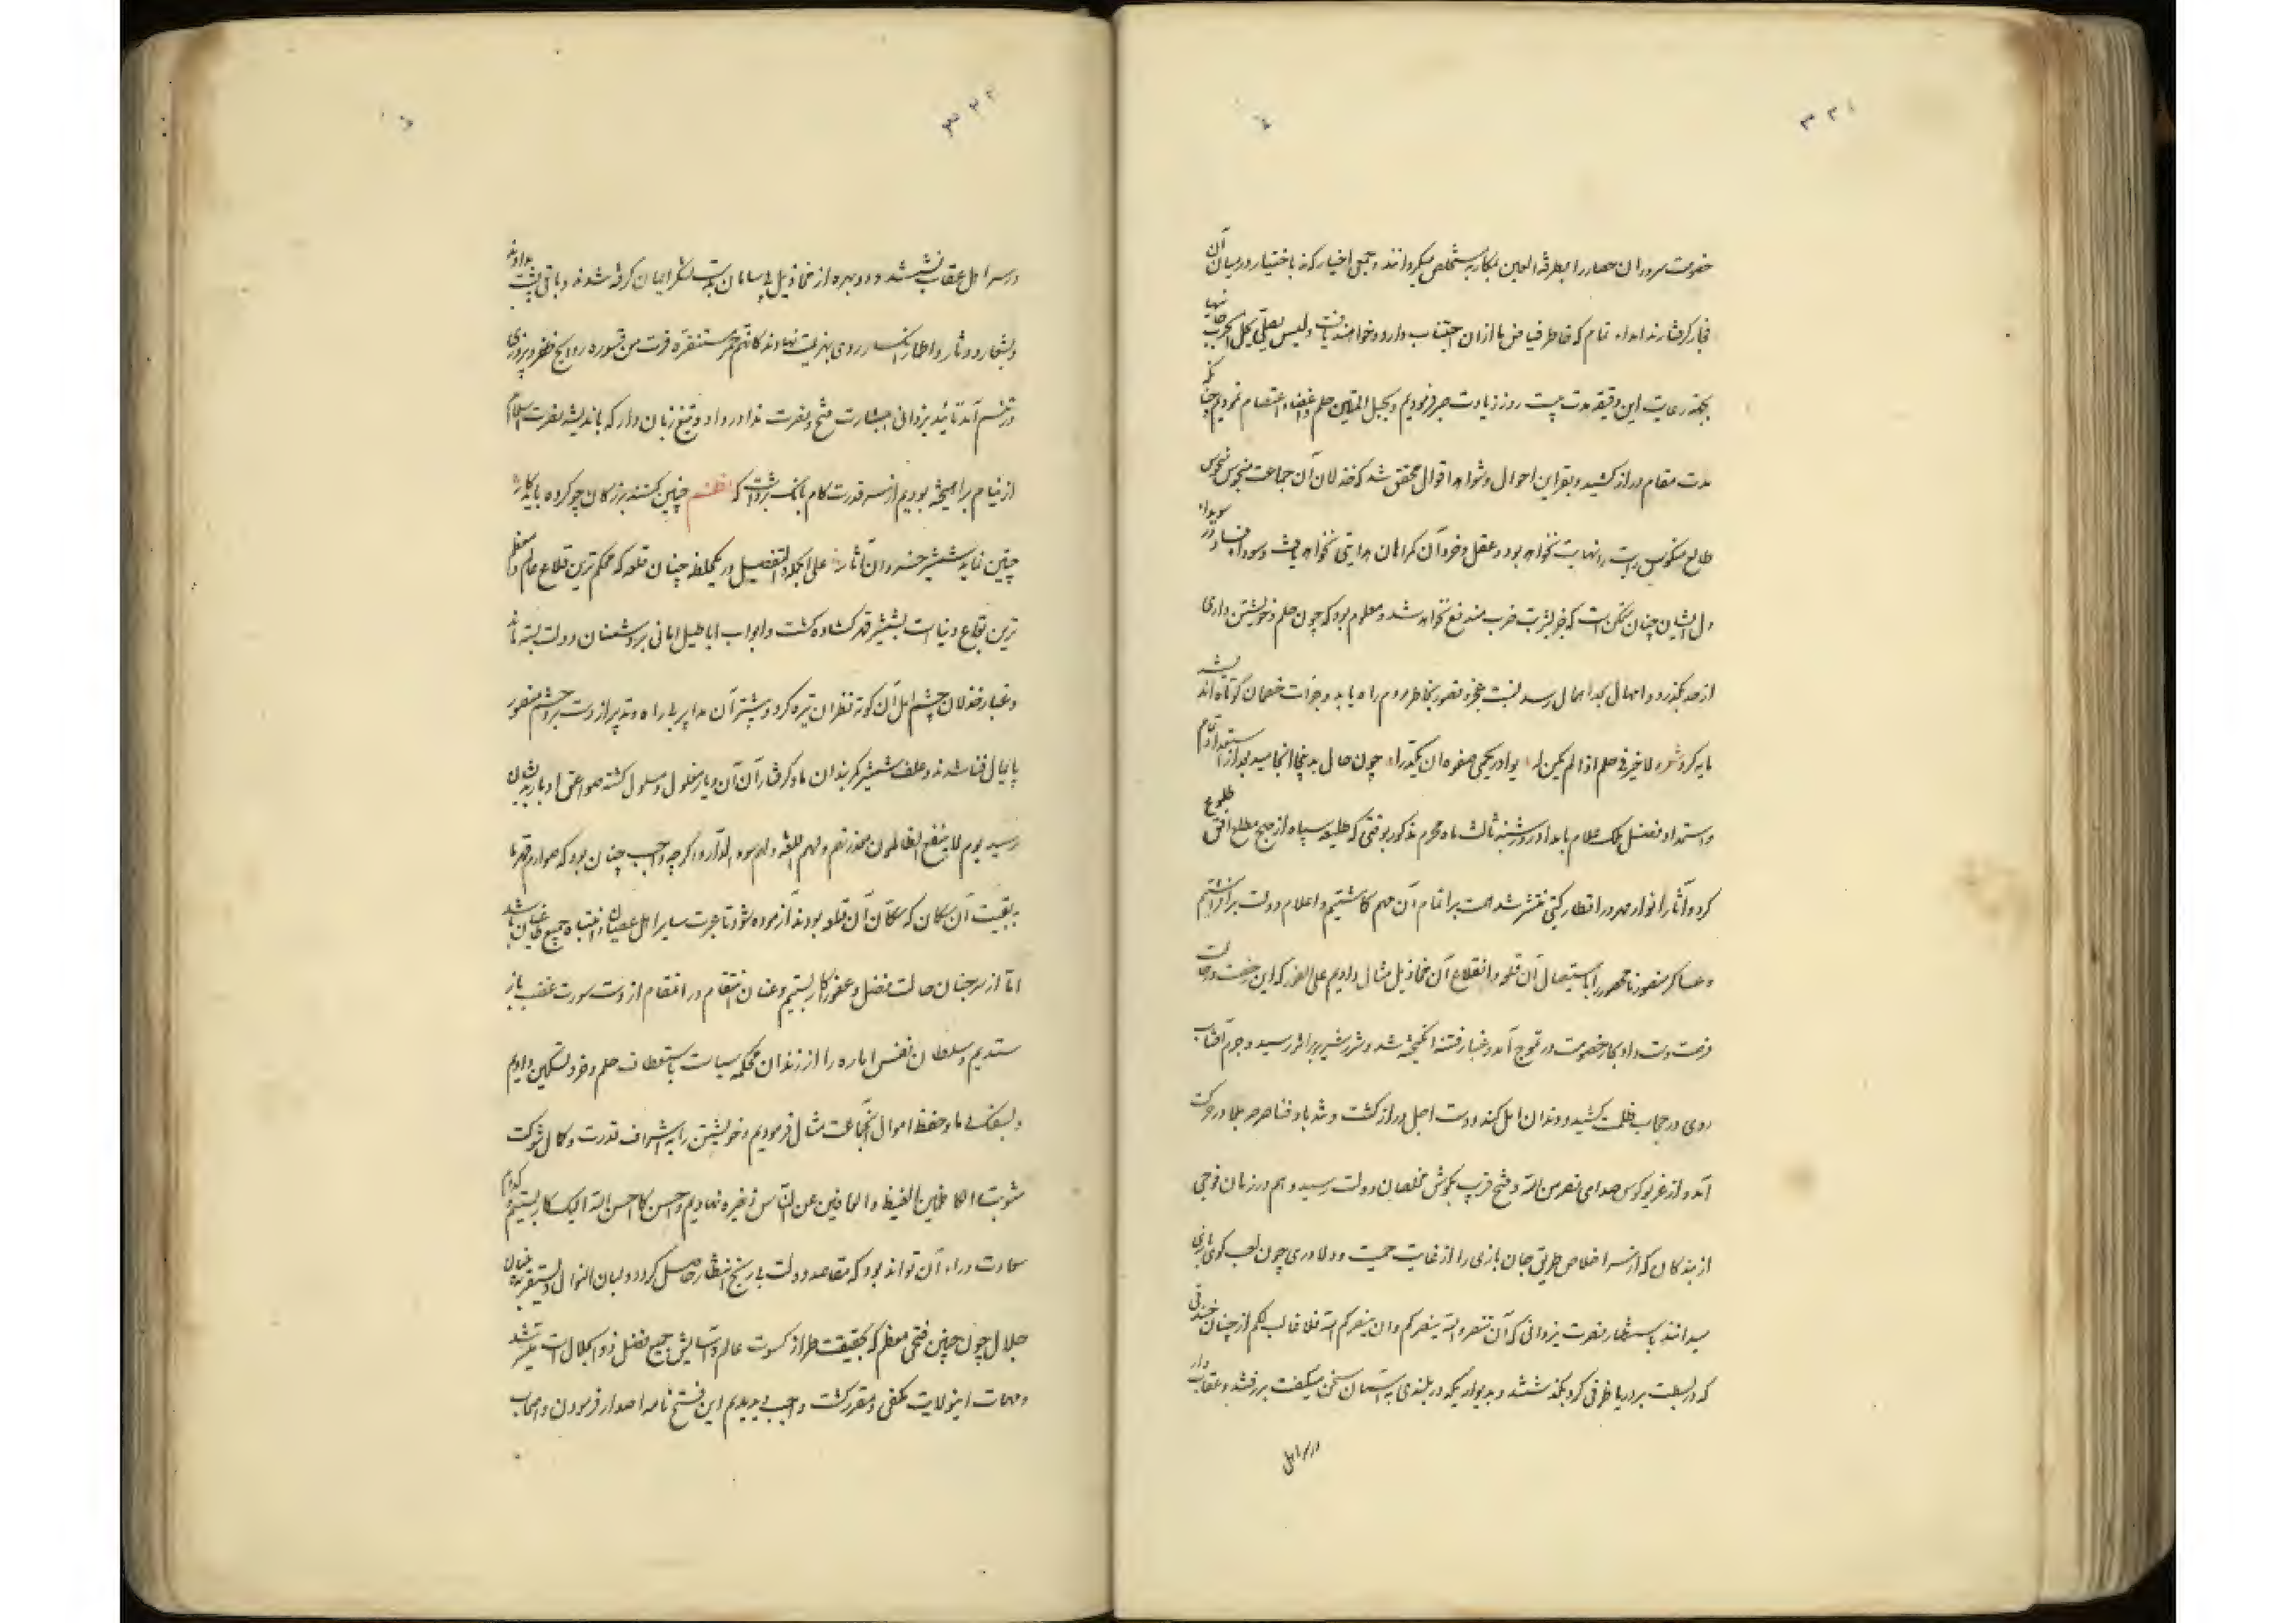 ۳۲۱
خصومت سروران حصار را بطرفة العین بمکاره شخص میکردانند و جمعی اخیار که نه باختیار در میان آن
فجار گرفتارند ایذاء تمام که خاطر فیاض ما از آن اجتناب دارد خواهند یافت ولیس یصلی بحل الحرب جانیها
بجهة رعایت این دقیقه مدت بیست روز زیادت صبر فرمودیم و بحبل المتین حلم و اغضاء اعتصام نمودیم چنانکه
مدت مقام دراز کشید و بقراین احوال و شواهد اقوال محقق شد که خذلان آن جماعت منحوس
طالع منکوس رایت را نهایت نخواهد بود و عقل و خرد آن گمراهان هدایتی نخواهد یافت و سودا فساد در سویداء
دل ایشان چنان متمکن است که جز بشربت ضرب مندفع نخواهد شد و معلوم بود که چون حلم و خویشتن داری
از حد بگذرد و امهال بحد اهمال رسد نسبت عجز و قصور بخاطر مردم راه یابد و جرات خصمان کوتاه اندیشه
مایه گردد شعر لا خیر فی حلم اذا لم یکن له بوادر یحمی صفوه ان یکدرا چون حال بدینجا انجامید بعد از استعداد تمام
و استمداد بفضل ملک علام بامداد روز شنبه ثالث ماه محرم مذکور بوقتی که طلیعه سپاه از صبح مطلع افق طلوع
کرد و آثار انوار مهر در اقطار گیتی منتشر شد همت بر اتمام آن مهم گماشتیم و اعلام دولت برافراشتیم
و عساکر منصور نامحصور را باستیصال آن قلعه و انقلاع آن مخاذیل مثال دادیم علی الفور که این رخصت در حالت
فرصت دست داد بحار خصومت در تموج آمد و غبار فتنه انگیخته شد و شرر شر بر اثیر رسید و جرم آفتاب
روی در حجاب ظلمت کشید و دندان امل کند و دست اجل دراز گشت و تند باد فنا صرصر بلا در حرکت
آمد و از غریو کوس صدای نصر من الله و فتح قریب بگوش مخلصان دولت رسید و هم در زمان فوجی
از بندگان که از سر اخلاص طریق جان بازی را از غایت حمیت و دلاوری چون لعب گوی بازی
میدانند باستظهار نصرت یزدانی که ان تنصروا الله ینصرکم و ان ینصرکم الله فلا غالب لکم از چنان خندقی
که در بسطت بر دریا ظرفی کرد بگذشتند و بدیواریکه در بلندی به آسمان سخن میگفت بر رفتند و عقاب وار
در سر اهل
۳۲۲
در سر اهل عقاب نشستند و دو بهره از مخاذیل بی سامان بدست لشکر ایمان گرفته شدند و باقی پشت بدادند
و بشعار و دثار و اطمار انکسار روی بهزیمت نهادند کانهم حمر مستنفرة فرت من قسورة روایح ظفر و پیروزی
در تنسم آمد تائید یزدانی ببشارت فتح و نصرت ندا در داد و تیغ زبان دار که باندیشه نصرت اسلام
از نیام برآمیخته بودیم از سر قدرت کام بانک برداشت که نظم چنین کنند بزرگان چو کرد باید کار
چنین نماید شمشیر خسروان آثار علی الجمله و التفصیل در یکلحظه چنان قلعه که محکم ترین قلاع عالم و معظم
ترین بقاع دنیا است بشمشیر قهر گشاده گشت و ابواب اباطیل امانی بر دشمنان دولت بسته ماند
و غبار خذلان چشم امل آن کوته نظران تیره کرد و بیشتر آن مدابیر بی راه و تدبیر از دست برد حشم منصور
پایمال فنا شدند و علف شمشیر کمربندان ما و گرفتاران آن دیار مغلول و مسلول گشته صواعق ادبار بدیشان
رسید یوم لا ینفع الظالمین معذرتهم و لهم اللعنة و لهم سوء الدار و اگرچه واجب چنان بود که صوارم قهر ما
به بقیت آن سکان که سکان آن قلعه بودند آزموده شود تا عبرت سایر اهل عصیان و انتباه جمیع طاغیان باشد
اما از سر چنان حالت بفضل و عفو کار بستیم و عنان انتقام در انتقام از دست سورت غضب باز
ستدیم و سلطان نفس اماره را از زندان محکمه سیاست باستعطاف حلم و خرد تسکین دادیم
و بسفک دما و حفظ اموال آنجماعت مثال فرمودیم و خویشتن را به اشراف قدرت و کمال شوکت
مثوبت الکاظمین الغیظ و العافین عن الناس ذخیره نهادیم و احسن کما احسن الله الیک کار بستیم کدام
سعادت وراء آن تواند بود که مقاصد دولت بی رنج انتظار حاصل گردد
جلال چون چنین فتحی معظم که بحقیقت طراز کسوت عالم و آسایش جمیع فضل ذو الجلال است میسر شد
و مهمات اینولایت مکفی و مقرر گشت واجب دیدیم این فتح نامه اصدار فرمودن و اصحاب